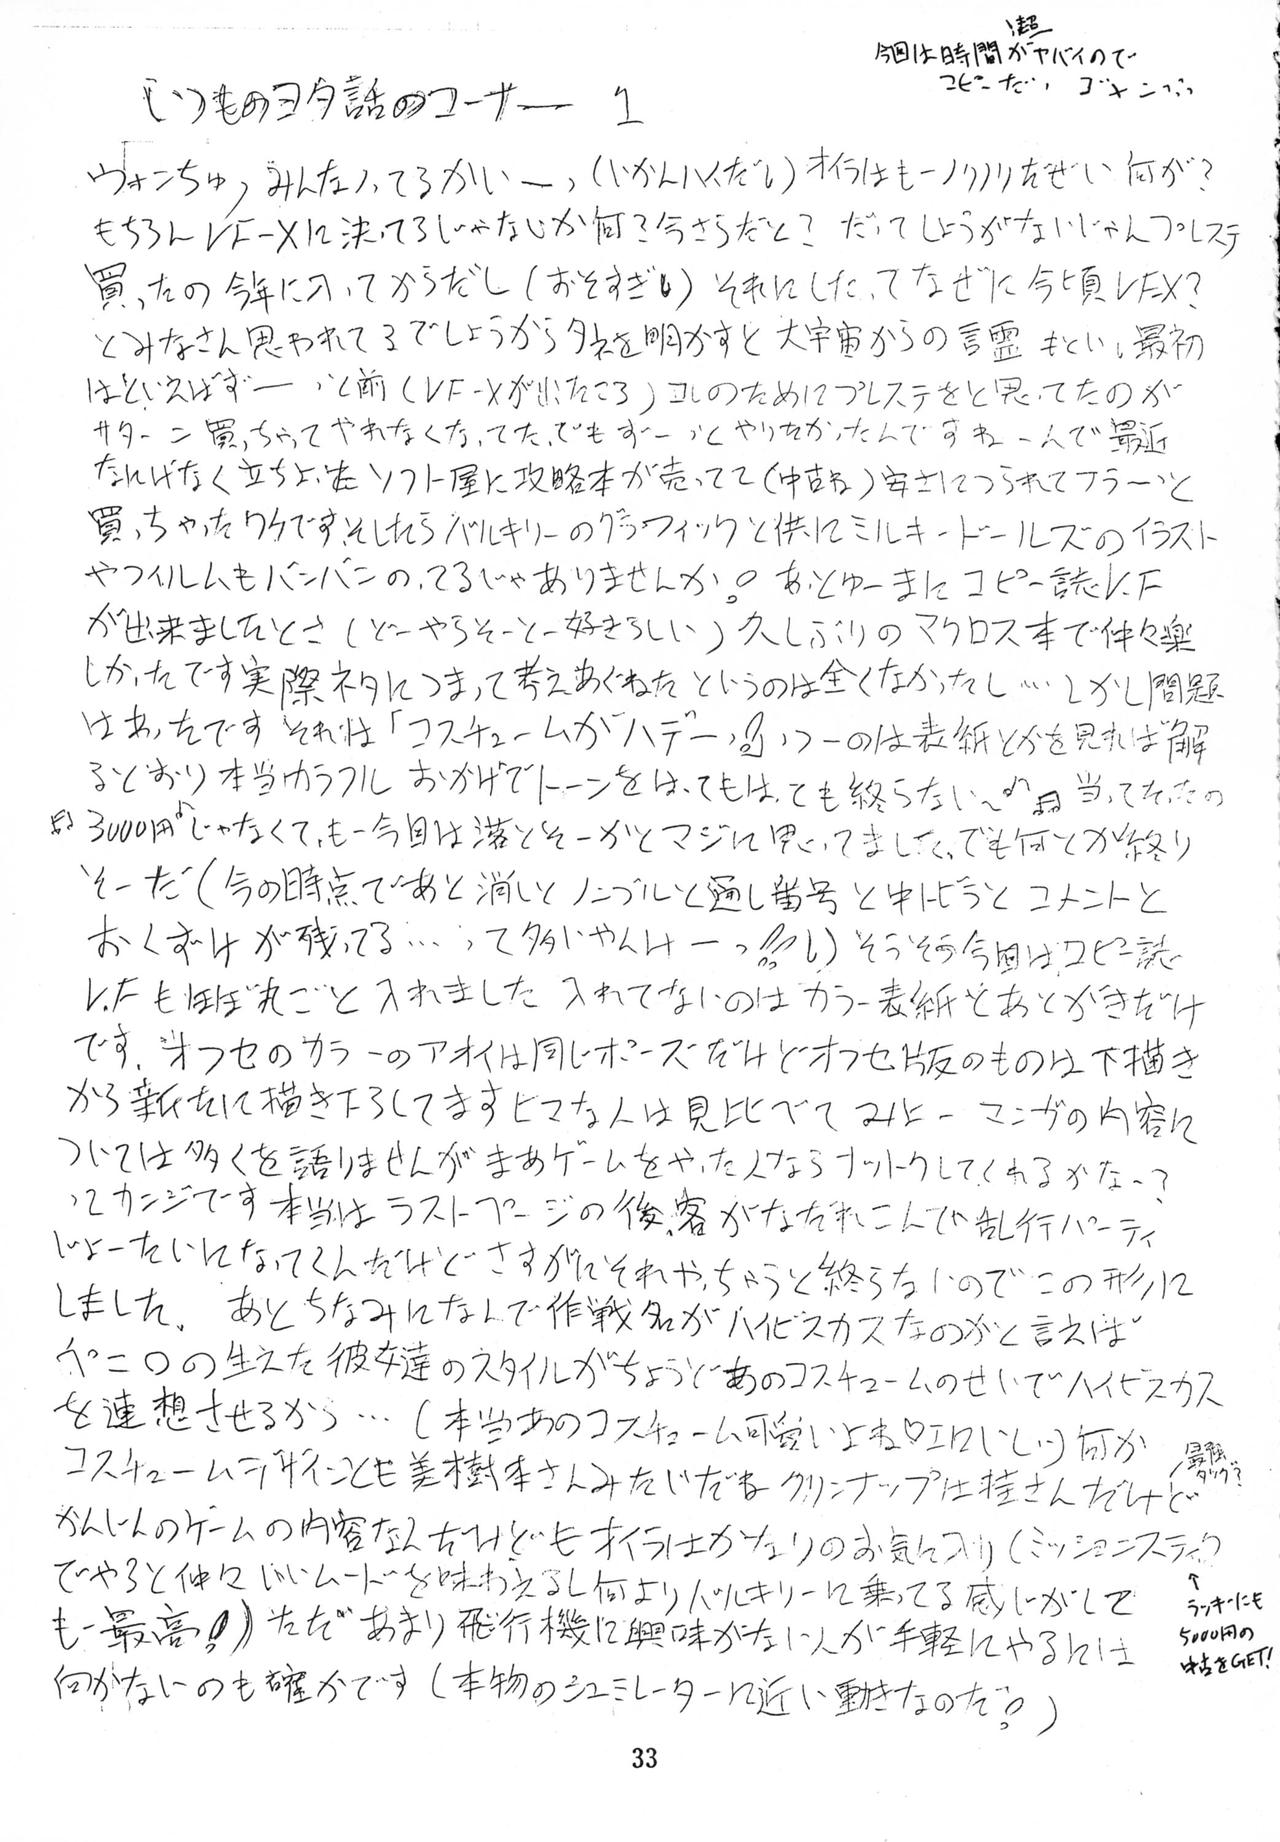 超
今回は時間がヤバイので
コピーだい ゴメンブゥ
いつものヨタ話のコーナー 1
ヴォンちゅっみんなノッてるかいーっ(いかんハイだし)オイラはもーノリノリだぜい何が?
もちろんVF-Xに決ってるじゃないか何?今さらだと?だってしょうがないじゃんプレステ
買ったの今年に入ってからだし(おそすぎ)それにしたってなぜに今頃VFX?
とみなさん思われてるでしょうからタネを明かすと大宇宙からの言霊もとい、最初
はといえばずーーっと前(VF-Xが出たころ)コレのためにプレステをと思ってたのが
サターン買っちゃってやれなくなってた、でもずーっとやりたかったんですねーんで最近
なにげなく立ちよったソフト屋に攻略本が売ってて(中古ね)安さにつられてフラーっと
買っちゃったワケです、そしたらバルキリーのグラフィックと供にミルキードールズのイラスト
やフィルムもバンバンのってるじゃありませんか!。あっとゆーまにコピー誌V.F
が出来ましたとさ(どーやらそーとー好きらしい)久しぶりのマクロス本で仲々楽
しかったです実際ネタにつまって考えあぐねたというのは全くなかったし…しかし問題
はあったです それは「コスチュームがハデーっ!!」っつーのは表紙とかを見れば解
るとおり本当カラフル おかげでトーンをはってもはっても終らない~♪♫当ってたったの
♫3000円♪じゃなくて、もー今回は落とそーかとマジに思ってました、でも何とか終り
そーだ(今の時点であと消しとノンブルと通し番号と中トビラとコメントと
おくずけが残ってる…って多いやんけーっ!!)そうそう今回はコピー誌
V.Fもほぼ丸ごと入れました 入れてないのはカラー表紙とあとがきだけ
です.オフセのカラーのアオイは同じポーズだけどオフセ版のものは下描き
から新たに描き下ろしてますヒマな人は見比べてみよー マンガの内容に
ついては多くを語りませんがまあゲームをやった人ならナットクしてくれるかなー?
ってカンジです本当はラストページの後、客がなだれこんで乱行パーティ
じょーたいになってくんだけどさすがにそれやっちゃうと終らないのでこの形に
しました。 あとちなみになんで作戦名がハイビスカスなのかと言えば
ペニ〇の生えた彼女達のスタイルがちょうどあのコスチュームのせいでハイビスカス
を連想させるから…(本当あのコスチューム可愛いよね♡エロいし)何か
コスチュームデザインとも美樹本さんみたいだねクリンナップは桂さんだけど
最強
タッグ?
かんじんのゲームの内容なんだけどもオイラはかなりのお気に入り(ミッションスティック
でやると仲々いいムードを味わえるし何よりバルキリーに乗ってる感じがして
も-最高!)ただあまり飛行機に興味がない人が手軽にやるには
向かないのも確かです(本物のシュミレーターに近い動きなのだ!)
↑
ラッキーにも
5000円の
中古をGET!
33